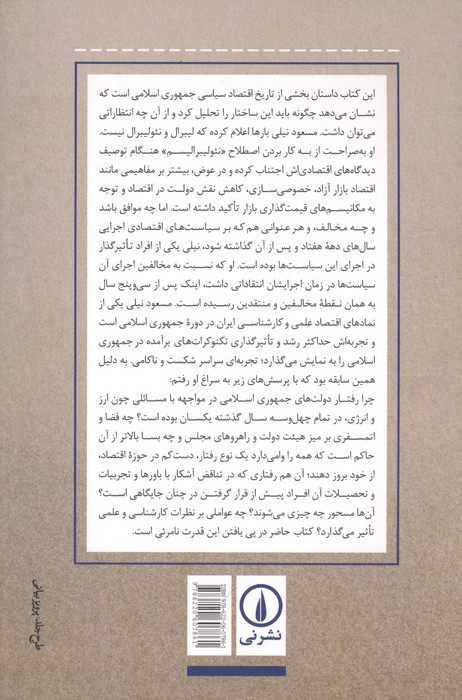 این کتاب داستان بخشی از تاریخ اقتصاد سیاسی جمهوری اسلامی است که
نشان می‌دهد چگونه باید این ساختار را تحلیل کرد و از آن چه انتظاراتی
می‌توان داشت. مسعود نیلی بارها اعلام کرده که لیبرال و نئولیبرال نیست.
او به‌صراحت از به کار بردن اصطلاح «نئولیبرالیسم» هنگام توصیف
دیدگاه‌های اقتصادی‌اش اجتناب کرده و در عوض، بیشتر بر مفاهیمی مانند
اقتصاد بازار آزاد، خصوصی‌سازی، کاهش نقش دولت در اقتصاد و توجه
به مکانیسم‌های قیمت‌گذاری بازار تأکید داشته است. اما چه موافق باشد
و چه مخالف، و هر عنوانی هم که بر سیاست‌های اقتصادی اجرایی
سال‌های دههٔ هفتاد و پس از آن گذاشته شود، نیلی یکی از افراد تأثیرگذار
در اجرای این سیاست‌ها بوده است. او که نسبت به مخالفین اجرای آن
سیاست‌ها در زمان اجرایشان انتقاداتی داشت، اینک پس از سی‌وپنج سال
به همان نقطهٔ مخالفین و منتقدین رسیده است. مسعود نیلی یکی از
نمادهای اقتصاد علمی و کارشناسی ایران در دورهٔ جمهوری اسلامی است
و تجربه‌اش حداکثر رشد و تأثیرگذاری تکنوکرات‌های برآمده در جمهوری
اسلامی را به نمایش می‌گذارد؛ تجربه‌ای سراسر شکست و ناکامی. به دلیل
همین سابقه بود که با پرسش‌های زیر به سراغ او رفتم:
چرا رفتار دولت‌های جمهوری اسلامی در مواجهه با مسائلی چون ارز
و انرژی، در تمام چهل‌وسه سال گذشته یکسان بوده است؟ چه فضا و
اتمسفری بر میز هیئت دولت و راهروهای مجلس و چه بسا بالاتر از آن
حاکم است که همه را وامی‌دارد یک نوع رفتار، دست‌کم در حوزهٔ اقتصاد،
از خود بروز دهند؛ آن هم رفتاری که در تناقض آشکار با باورها و تجربیات
و تحصیلات آن افراد پیش از قرار گرفتن در چنان جایگاهی است؟
آن‌ها مسحور چه چیزی می‌شوند؟ چه عواملی بر نظرات کارشناسی و علمی
تأثیر می‌گذارد؟ کتاب حاضر در پی یافتن این قدرت نامرئی است.
نشرنی
9786220607861
طرح جلد: پرویز بیانی